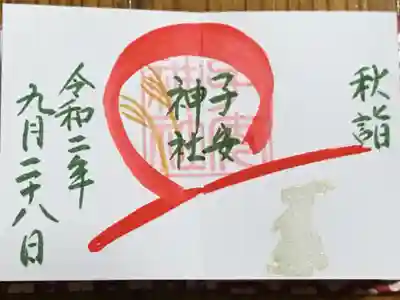 秋詣
子安
神社
令和二年
九月二十八日